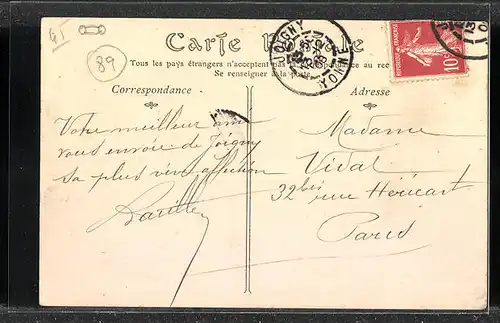 45
89
Carte Postale
JOIGNY
YONNE
REPUBLIQUE FRANÇAISE
10
Tous les pays étrangers n'acceptent pas la correspondance au rec
Se renseigner à la poste
Correspondance
Adresse
Votre meilleur ami
vous envoie de Joigny
sa plus vive affection
Madame
Vidal
32bis rue Héricart
Paris